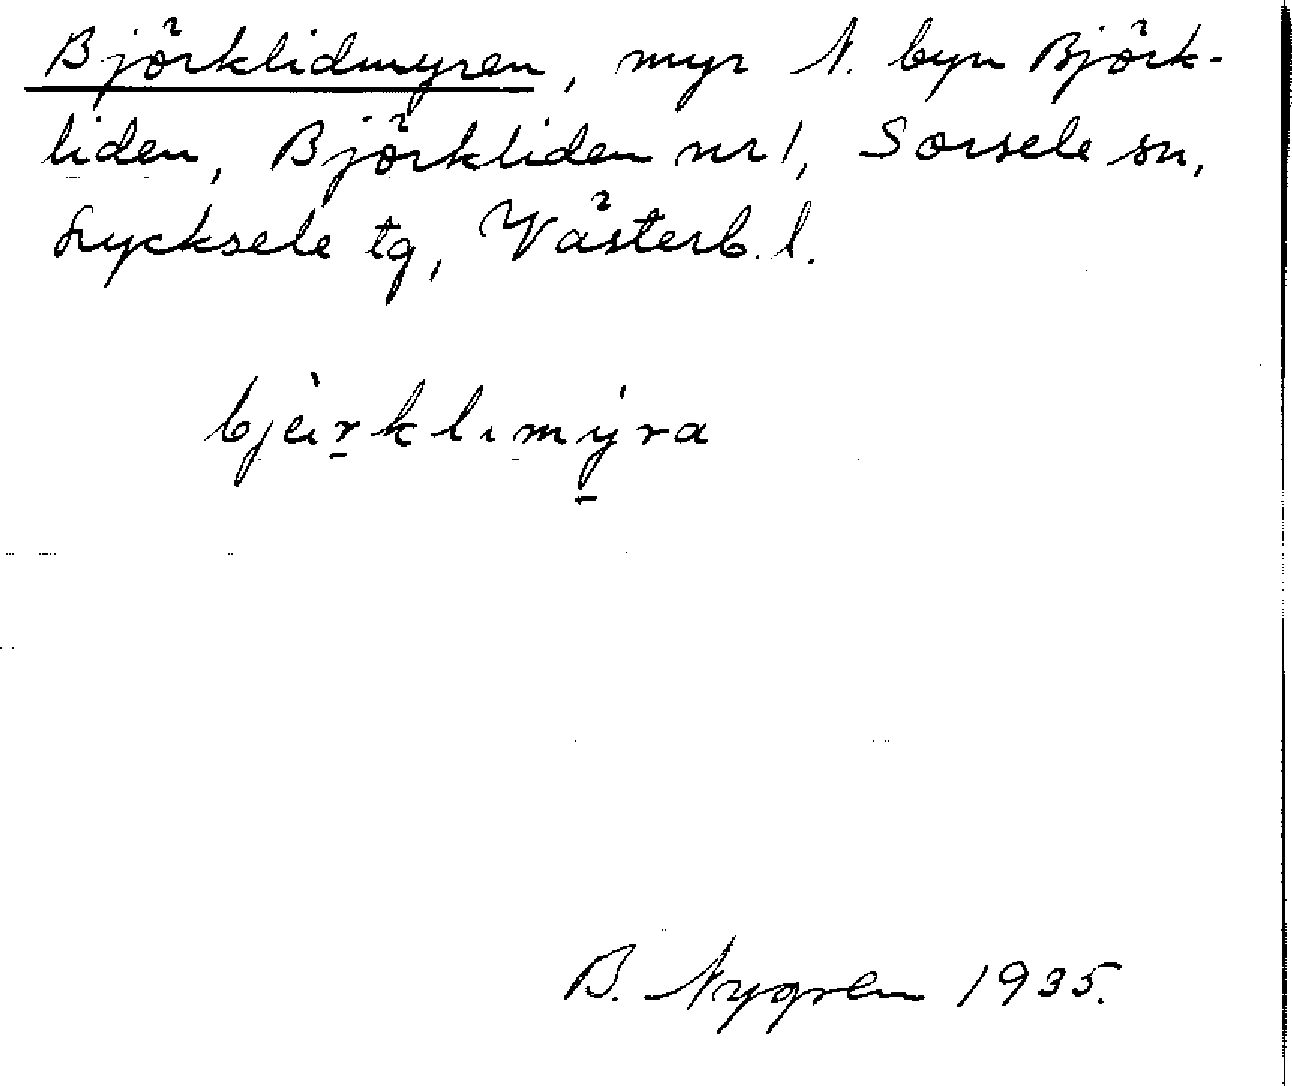 Björklidmyren, myr N. byn Björk-
liden, Björkliden nr 1, Sorsele sn,
Lycksele tg, Västerb. l.
B. Nygren 1935.